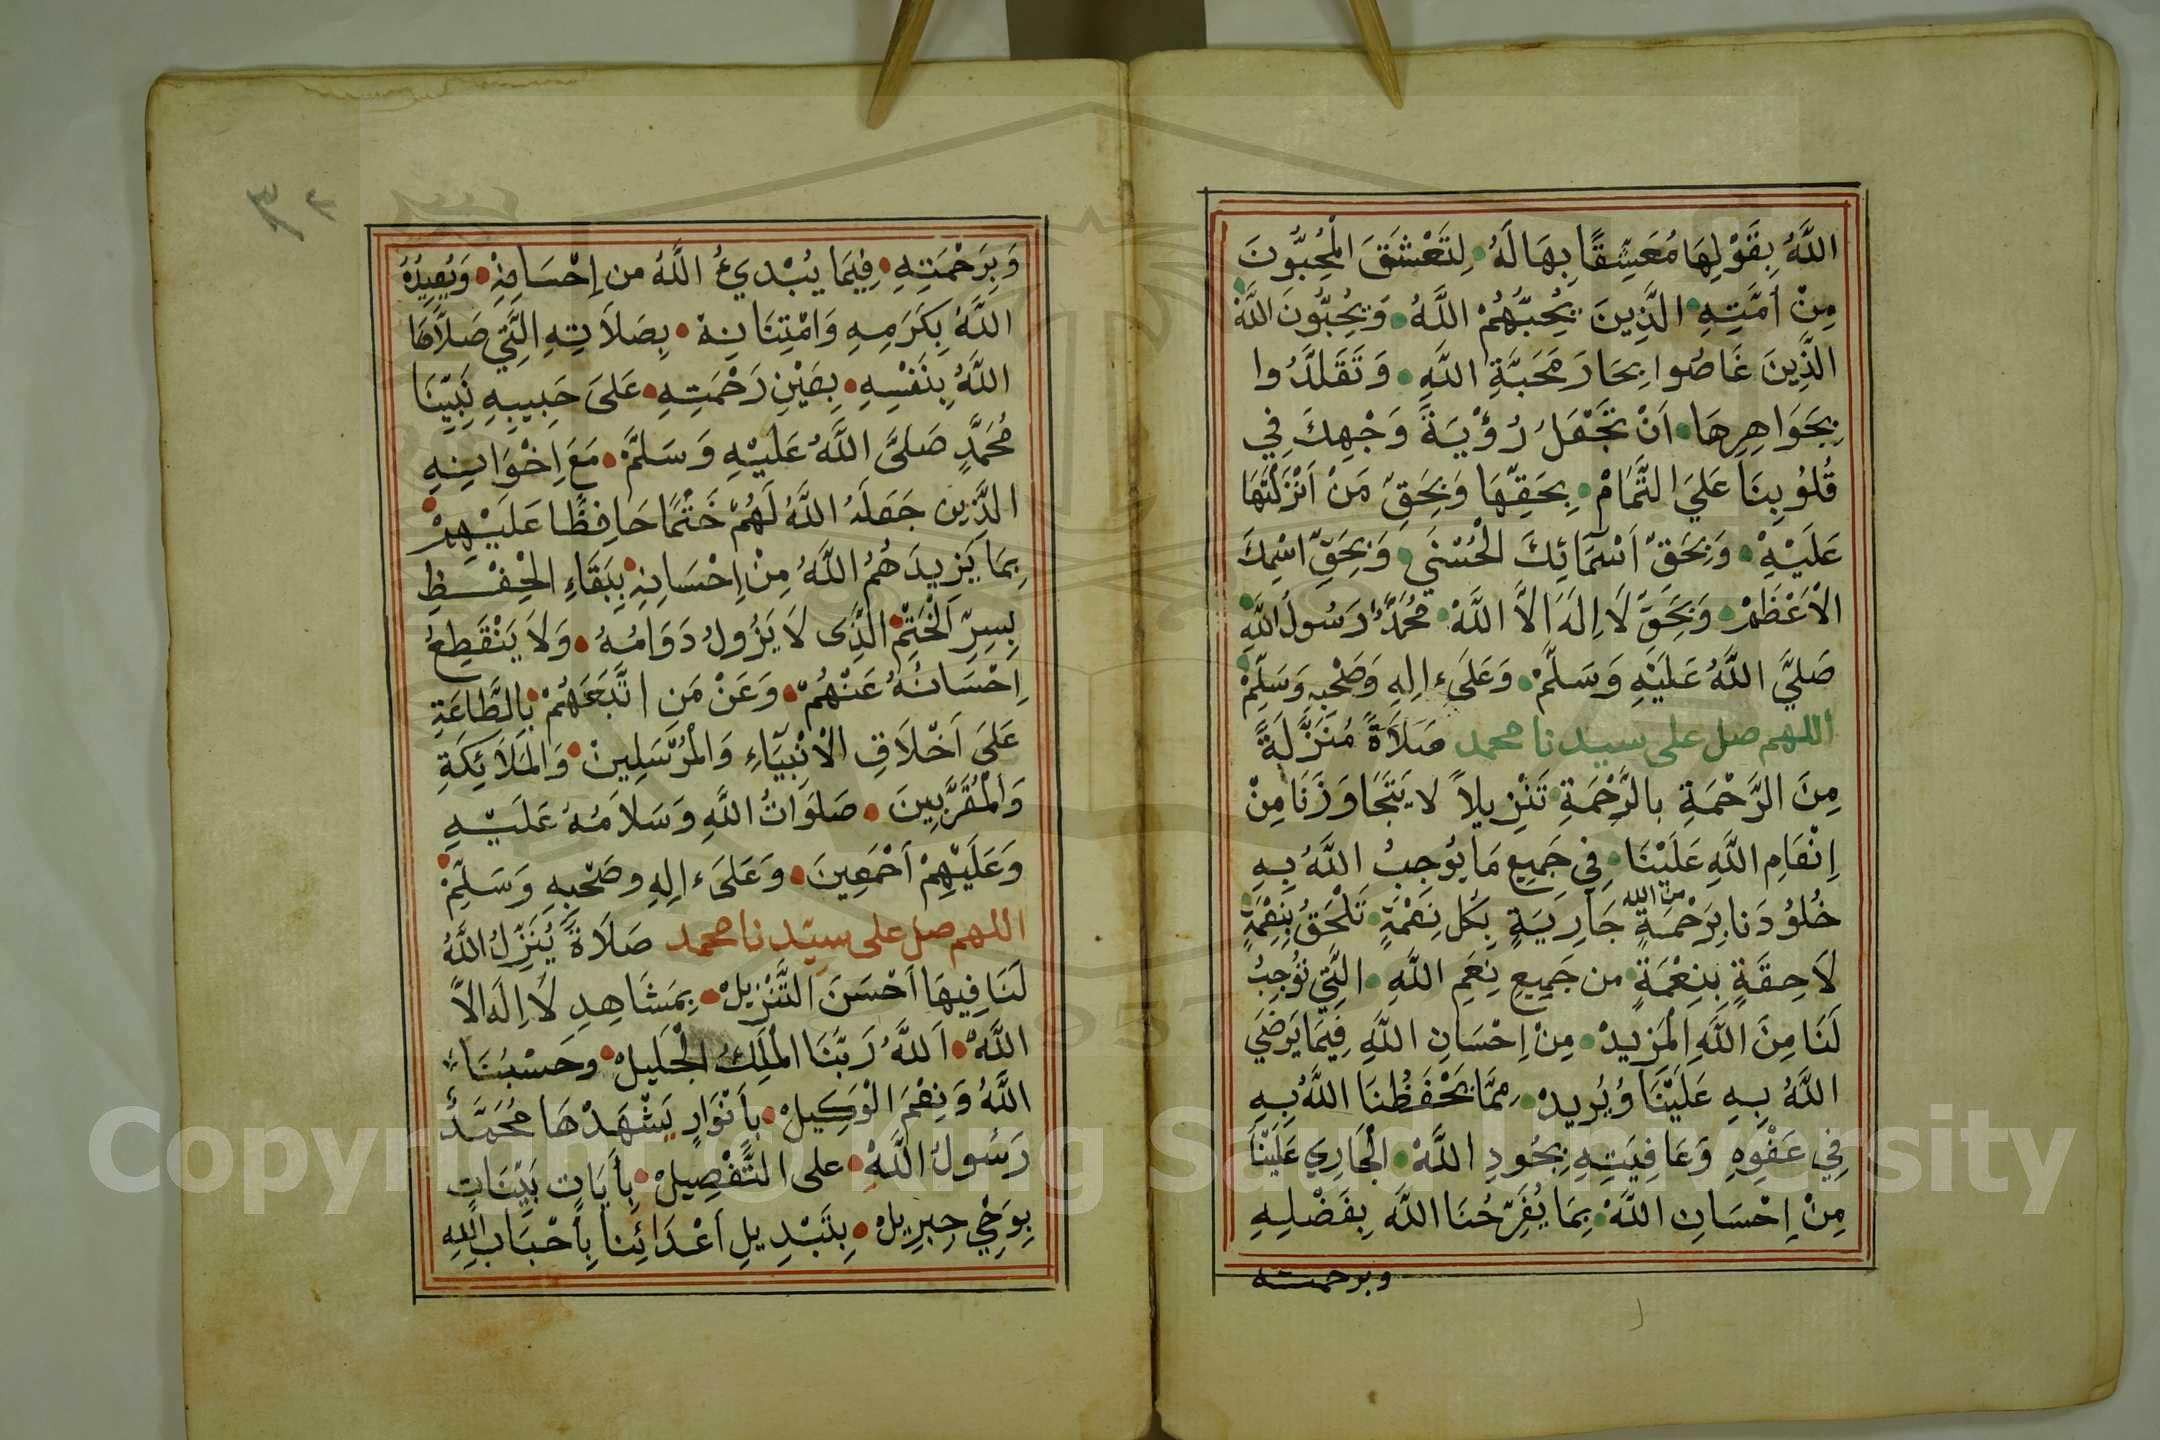 اللَّهُ بِقَوْلِهَا مُعَشِّقًا بِهَا لَهُ لِتَعْشَقَ الْمُحِبُّونَ
مِنْ أُمَّتِهِ الَّذِينَ يُحِبُّهُمْ اللَّهُ وَيُحِبُّونَ اللَّهْ
الَّذِينَ غَاصُوا بِحَارَ مَحَبَّةِ اللَّهِ وَتَقَلَّدُوا
بِجَوَاهِرِهَا أَنْ تَجْعَلَ رُؤْيَةَ وَجْهِكَ فِي
قُلُوبِنَا عَلَى التَّمَامْ بِحَقِّهَا وَبِحَقِّ مَنْ أَنْزَلْتَهَا
عَلَيْهْ وَبِحَقِّ أَسْمَائِكَ الْحُسْنَى وَبِحَقِّ اسْمِكَ
الْأَعْظَمْ وَبِحَقِّ لَا إِلَهَ إِلَّا اللَّهْ مُحَمَّدٌ رَسُولُ اللَّهِ
صَلَّى اللَّهُ عَلَيْهِ وَسَلَّمْ وَعَلَى ءالِهِ وَصَحْبِهِ وَسَلِّمْ
اللهم صل على سيدنا محمد صَلَاةً مُنَزَّلَةً
مِنَ الرَّحْمَةِ بِالرَّحْمَةِ تَنْزِيلاً لا يَتَجَاوَزَنَا مِنْ
إِنْعَامِ اللَّهِ عَلَيْنَا فِي جَمِيعِ مَا يُوجِبُ اللَّهُ بِهِ
خُلُودَنا بِرَحْمَةٍ من الله جَارِيَةٍ بِكُلِّ نِعْمَةٍ تَلْحَقُ بِنِعْمَةٍ
لَاحِقَةٍ بِنِعْمَةٍ من جَمِيعِ نِعَمِ اللَّهِ الَّتِي تُوجِبُ
لَنَا مِنَ اللَّهِ الْمَزِيدْ مِنْ إِحْسَانِ اللَّهِ فِيمَا يَرْضَى
اللَّهُ بِهِ عَلَيْنَا وَيُرِيدْ مِمَّا يَحْفَظُنَا اللَّهُ بِهِ
فِي عَفْوِهِ وَعَافِيَتِهِ بِجُودِ اللَّهْ الْجَارِي عَلَيْنَا
مِنْ إِحْسَانِ اللَّهْ بِمَا يُفَرِّحُنَا اللَّهُ بِفَضْلِهِ
وبرحمته
وَبِرَحْمَتِهِ فِيمَا يُبْدِيءُ اللَّهُ من إِحْسَانِهْ وَيُعِيدُهُ
اللَّهُ بِكَرَمِهِ وَامْتِنَانِهْ بِصَلَاتِهِ الَّتِي صَلَّاهَا
اللَّهُ بِنَفْسِهِ بِعَيْنِ رَحْمَتِهِ عَلَى حَبِيبِهِ نَبِيِّنَا
مُحَمَّدٍ صَلَّى اللَّهُ عَلَيْهِ وَسَلَّمْ مَعَ إِخْوَانِهِ
الَّذِين جَعَلَهُ اللَّهُ لَهُمْ خَتْمًا حَافِظًا عَلَيْهِمْ
بِمَا يَزِيدَهُمُ اللَّهُ مِنْ إِحْسَانِهِ بِبَقَاءِ الْحِفْظِ
بِسِرِّ الْخَتْمِ الَّذِى لَا يَزُولُ دَوَامُهُ وَلَا يَنْقَطِعُ
إِحْسَانُهُ عَنْهُمْ وَعَنْ مَنِ اتَّبَعَهُمْ بِالطَّاعَةِ
عَلَى أَخْلَاقِ الْأَنْبِيَاءِ وَالْمُرْسَلِينْ وَالْمَلَائِكَةِ
وَالْمُقَرَّبِينَ صَلَوَاتُ اللَّهِ وَسَلَامُهُ عَلَيْهِ
وَعَلَيْهِمْ أَجْمَعِينَ وَعَلَى ءالِهِ وصَحْبِهِ وَسَلِّمْ
اللهم صل على سيّدنا محمد صَلَاةً يُنَزِّلُ اللَّهُ
لَنَا فِيهَا أَحْسَنَ التَّنْزِيلْ بِمَشَاهِدِ لَا إِلَهَ إِلَّا
اللَّهْ اَللَّهُ رَبَّنَا الْمَلِكُ الْجَلِيلْ وحَسْبُنَا
اللَّهُ وَنِعْمَ الْوَكِيلْ بِأَنْوَارٍ يَشْهَدْهَا مُحَمَّدٌ
رَسُولُ اللَّهْ على التَّفْصِيلْ بِأَيَاتٍ بَيِّنَاتٍ
بِوَحْيِ جِبْرِيلْ بِتَبْدِيلِ أَعْدَائِنَا بِأَحْبَابِ اللَّهِ
Copyright © King Saud University